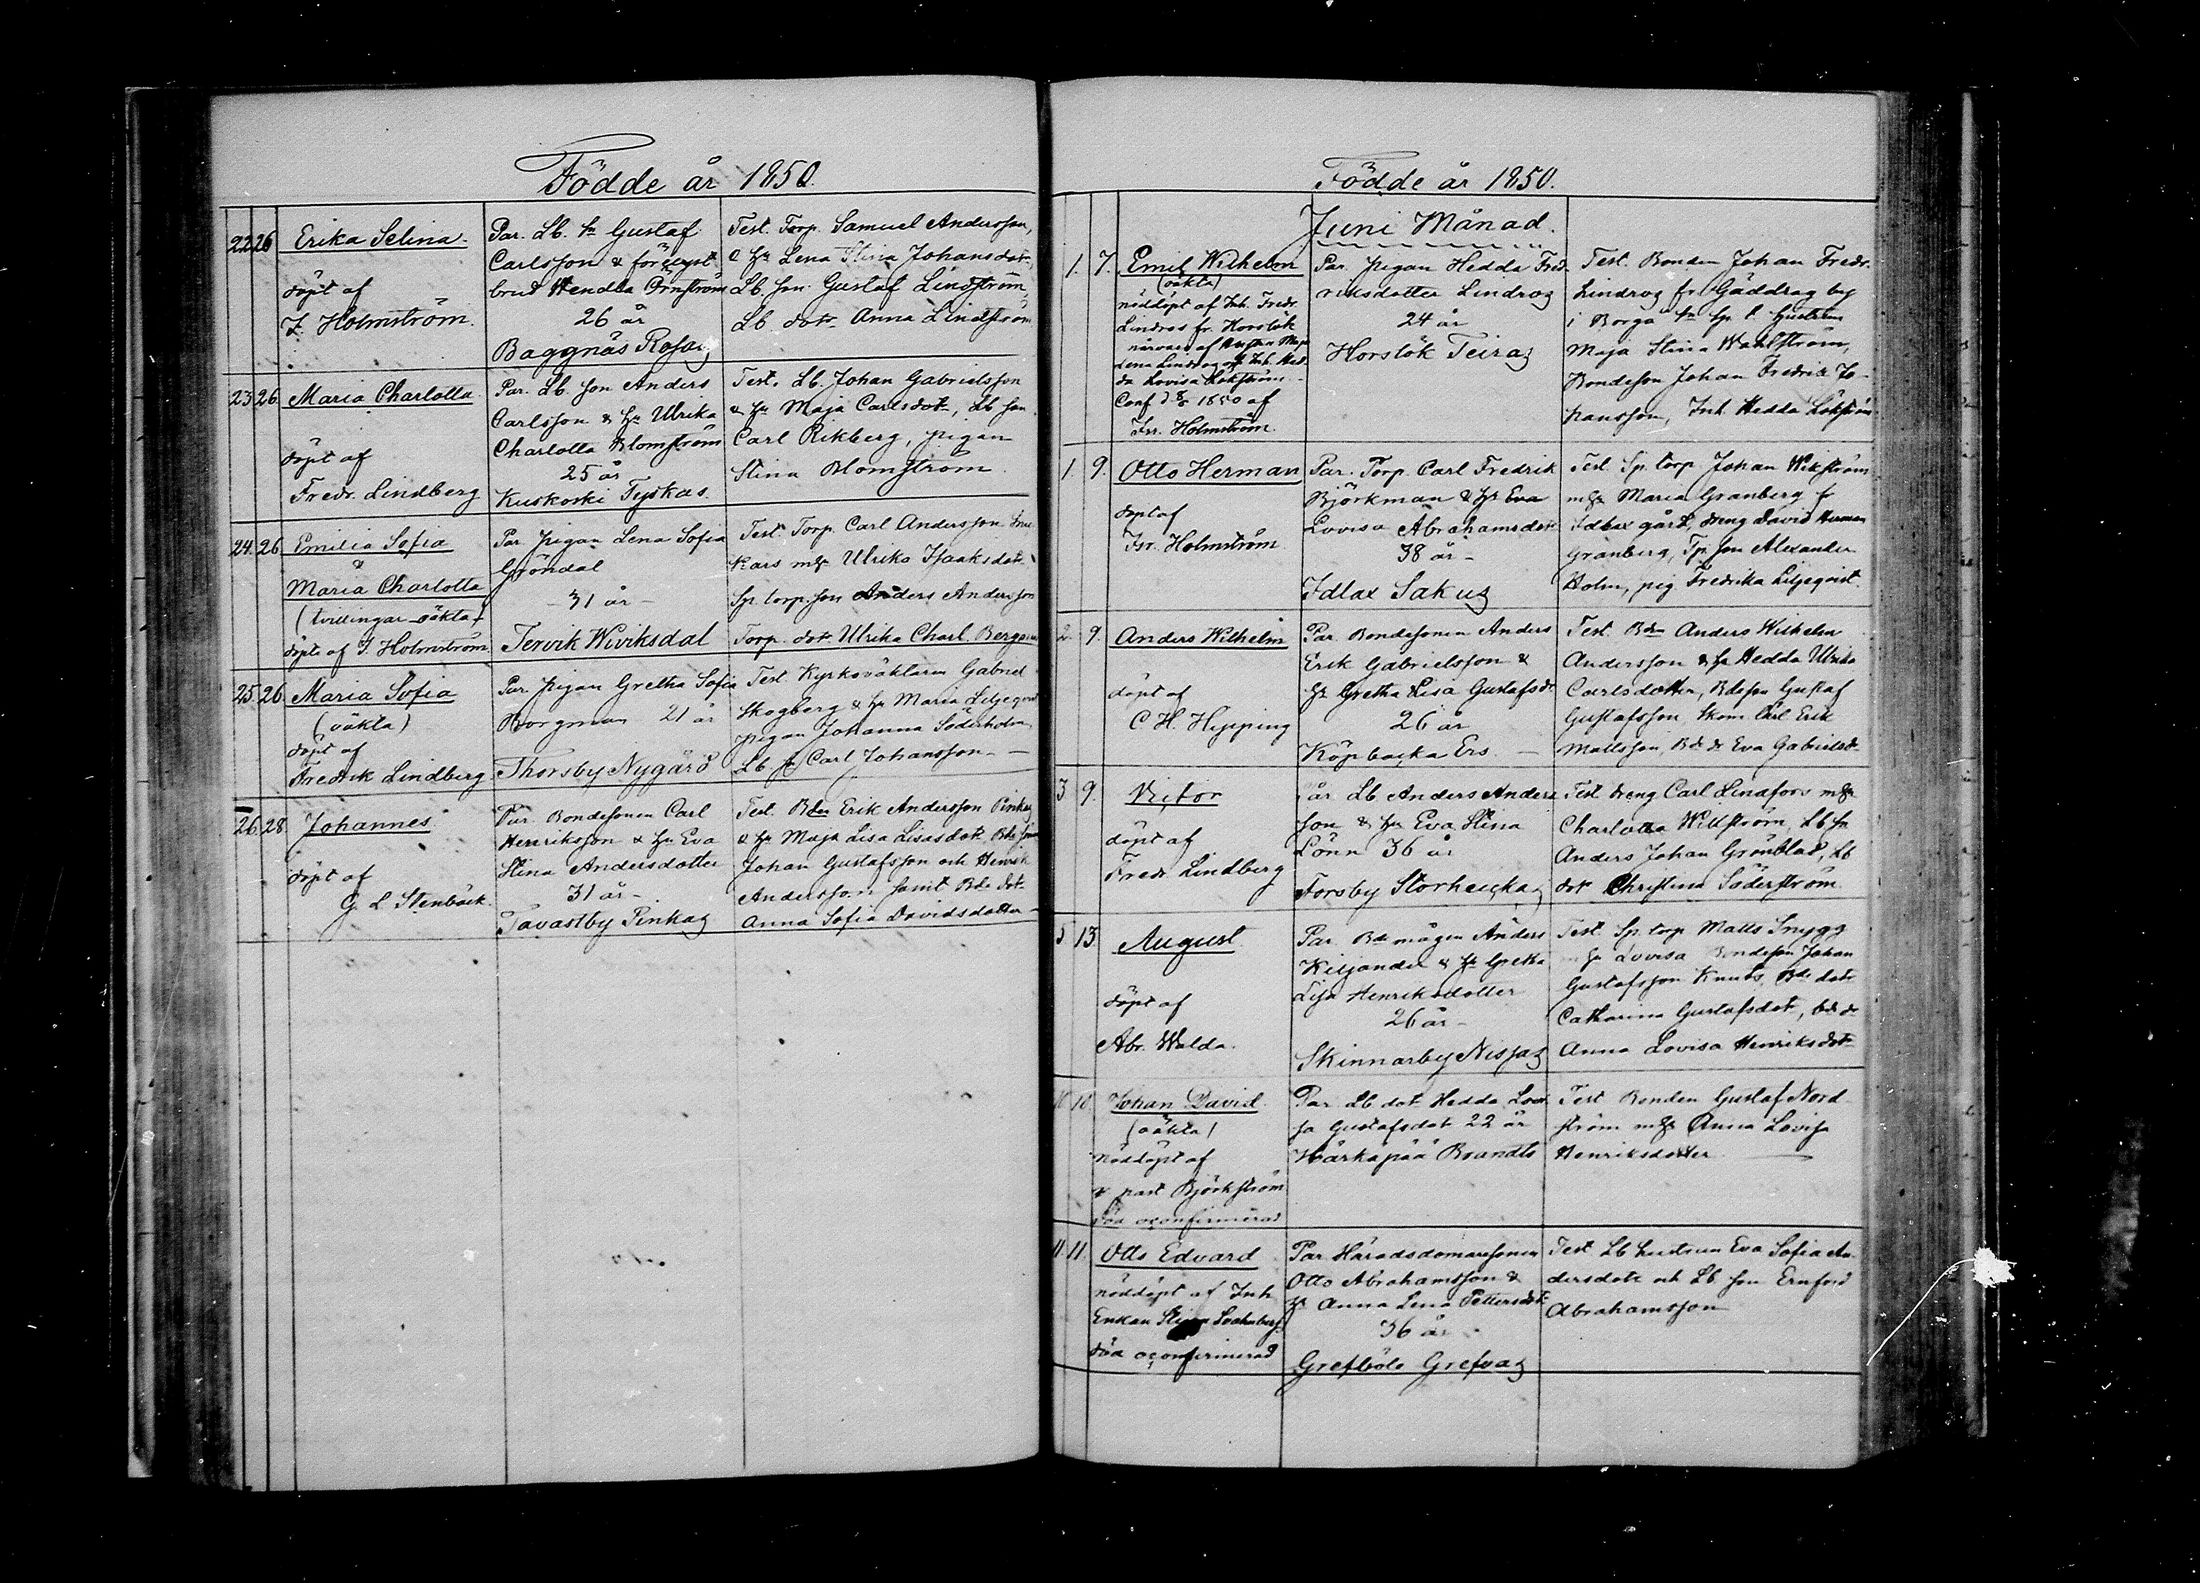 Födde år 1850.
22 26 Erika Selina.
döpt af
J. Holmström.
Par. Lb. sn Gustaf
Carlsson & förlegst
brud Hendla Örnström
26 år
Baggnäs Rosas
Test. Torp. Samuel Andersson,
& hu Lena Stina Johansdotr
Lb. son Gustaf Lindström
Lb. dotr Anna Lindström
23 26. Maria Charlotta.
döpt af
Fredr. Lindberg
Par. Lb. son Anders
Carlsson & hu Ulrika
Charlotta Blomström
25 år
Kuskoski Tyskas.
Test. Lb. Johan Gabrielsson
& hu Maja Carlsdotr, Lb son
Carl Rikberg, pigan
Stina Blomström.
24. 26 Emilia Sofia
&
Maria Charlotta
(tvillingar oäkta)
döpte af J. Holmström
Par pigan Lena Sofia
Gröndal
- 31 år -
Tervik Wiviksdal
Test. Torp. Carl Andersson
Kars mhu Ulrika Isaaksdotr
Sp. torp. son Anders Andersson
Torp. dotr. Ulrika Charl. Bergström
25. 26. Maria Sofia
(oäkta)
döpt af
Fredrik Lindberg
Par. pigan Gretha Sofia
Borgman 21 år
Thorsby Nygård
Test Kyrkoväktaren Gabriel
Skogberg & hu Maria Liljeqvist
pigan Johanna Söderholm
Lb. sn Carl Johansson -
26. 28 Johannes
döpt af
G. L Stenbäck.
Par. Bondesonen Carl
Henriksson & hu Eva
Stina Andersdotter
31 år -
Tavastby Pinkas
Test. Bdn Erik Andersson Pinkas
& hu Maja Lisa Lisasdotr Bde son
Johan Gustafsson och Henrik
Andersson samt Bde dotr
Anna Sofia Davidsdotter -
Födde år 1850.
Juni Månad.
1. 7. Emil Wilhelm
(oäkta)
nöddöpt af Inh. Fredr.
Lindros fr. Horslök
närvaro af
Lena Lindros & Inh. Hed-
da Lovisa Lökström.
Conf. d 8/6 1850 af
Fr. Holmström.
Par. pigan Hedda Fred-
riksdotter Lindros
24 år
Horslök Teiras
Test. Bonden Johan Fredr.
Lindros fr. Gäddrag by
i Borgå sn
Maja Stina Wahlström,
Bondeson Johan Fredrik Jo-
hansson, Inh. Hedda Lökström
1. 9. Otto Herman
döpt af
Fr. Holmström
Par. Torp. Carl Fredrik
Björkman & hu Eva
Lovisa Abrahamsdotr
38 år -
Idlax Sakus
Test Sp. torp Johan Wikström
mhu Maria Granberg fr
Idlax gård, dreng David Herman
Granberg, Tp. son Alexander
Holm, pig Fredrika Liljeqvist
2. 9. Anders Wilhelm
döpt af
C. H. Hipping
Par Bondesonen Anders
Erik Gabrielsson &
hu Gretha Lisa Gustafsdr
26 år
Köpbacka Ers. -
Test. Bdn Anders Wilhelm
Andersson & hu Hedda Ulrika
Carlsdotter, Bdeson Gustaf
Gustafsson Skom Carl Erik
Mattsson, Bde dr Eva Gabrielsdr
3 9. Victor
döpt af
Fredr Lindberg
Par Lb Anders Anders-
son & hu Eva Stina
Lönn 36 år
Forsby Storheickas
Test dreng Carl Lindfors mhu
Charlotta Willström, Lb sn
Anders Johan Grönblad, Lb
dotr Christina Söderström.
5 13 August
döpt af
Abr. Walda.
Par Bde mågen Anders
Kiljander & hu Gretha
Lisa Henriksdotter
26 år -
Skinnarby Nissas
Test. Sp. torp Matts Snygg
mhu Lovisa Bondeson Johan
Gustafsson Knuts, Bde dotr
Catharina Gustafsdotr, bde dr
Anna Lovisa Henriksdotr
10 10. Johan David.
(oäkta)
nöddöpt af
v past Björkström
död oconfirmerad
Par Lb dotr Hedda Lovi-
sa Gustafsdotr 22 år
Härkäpää Brandts
Test Bonden Gustaf Nord-
ström mhu Anna Lovisa
Henriksdotter
11 11. Otto Edvard
nöddöpt af Inh
Enkan Stina
död oconfirmerad
Par Häradsdomaresonen
Otto Abrahamsson &
hu Anna Lena Pettersdotr
36 år
Greftböle Grefvas
Test Lb hustrun Eva Sofia An-
dersdotr och Lb. son Ernfrid
Abrahamsson